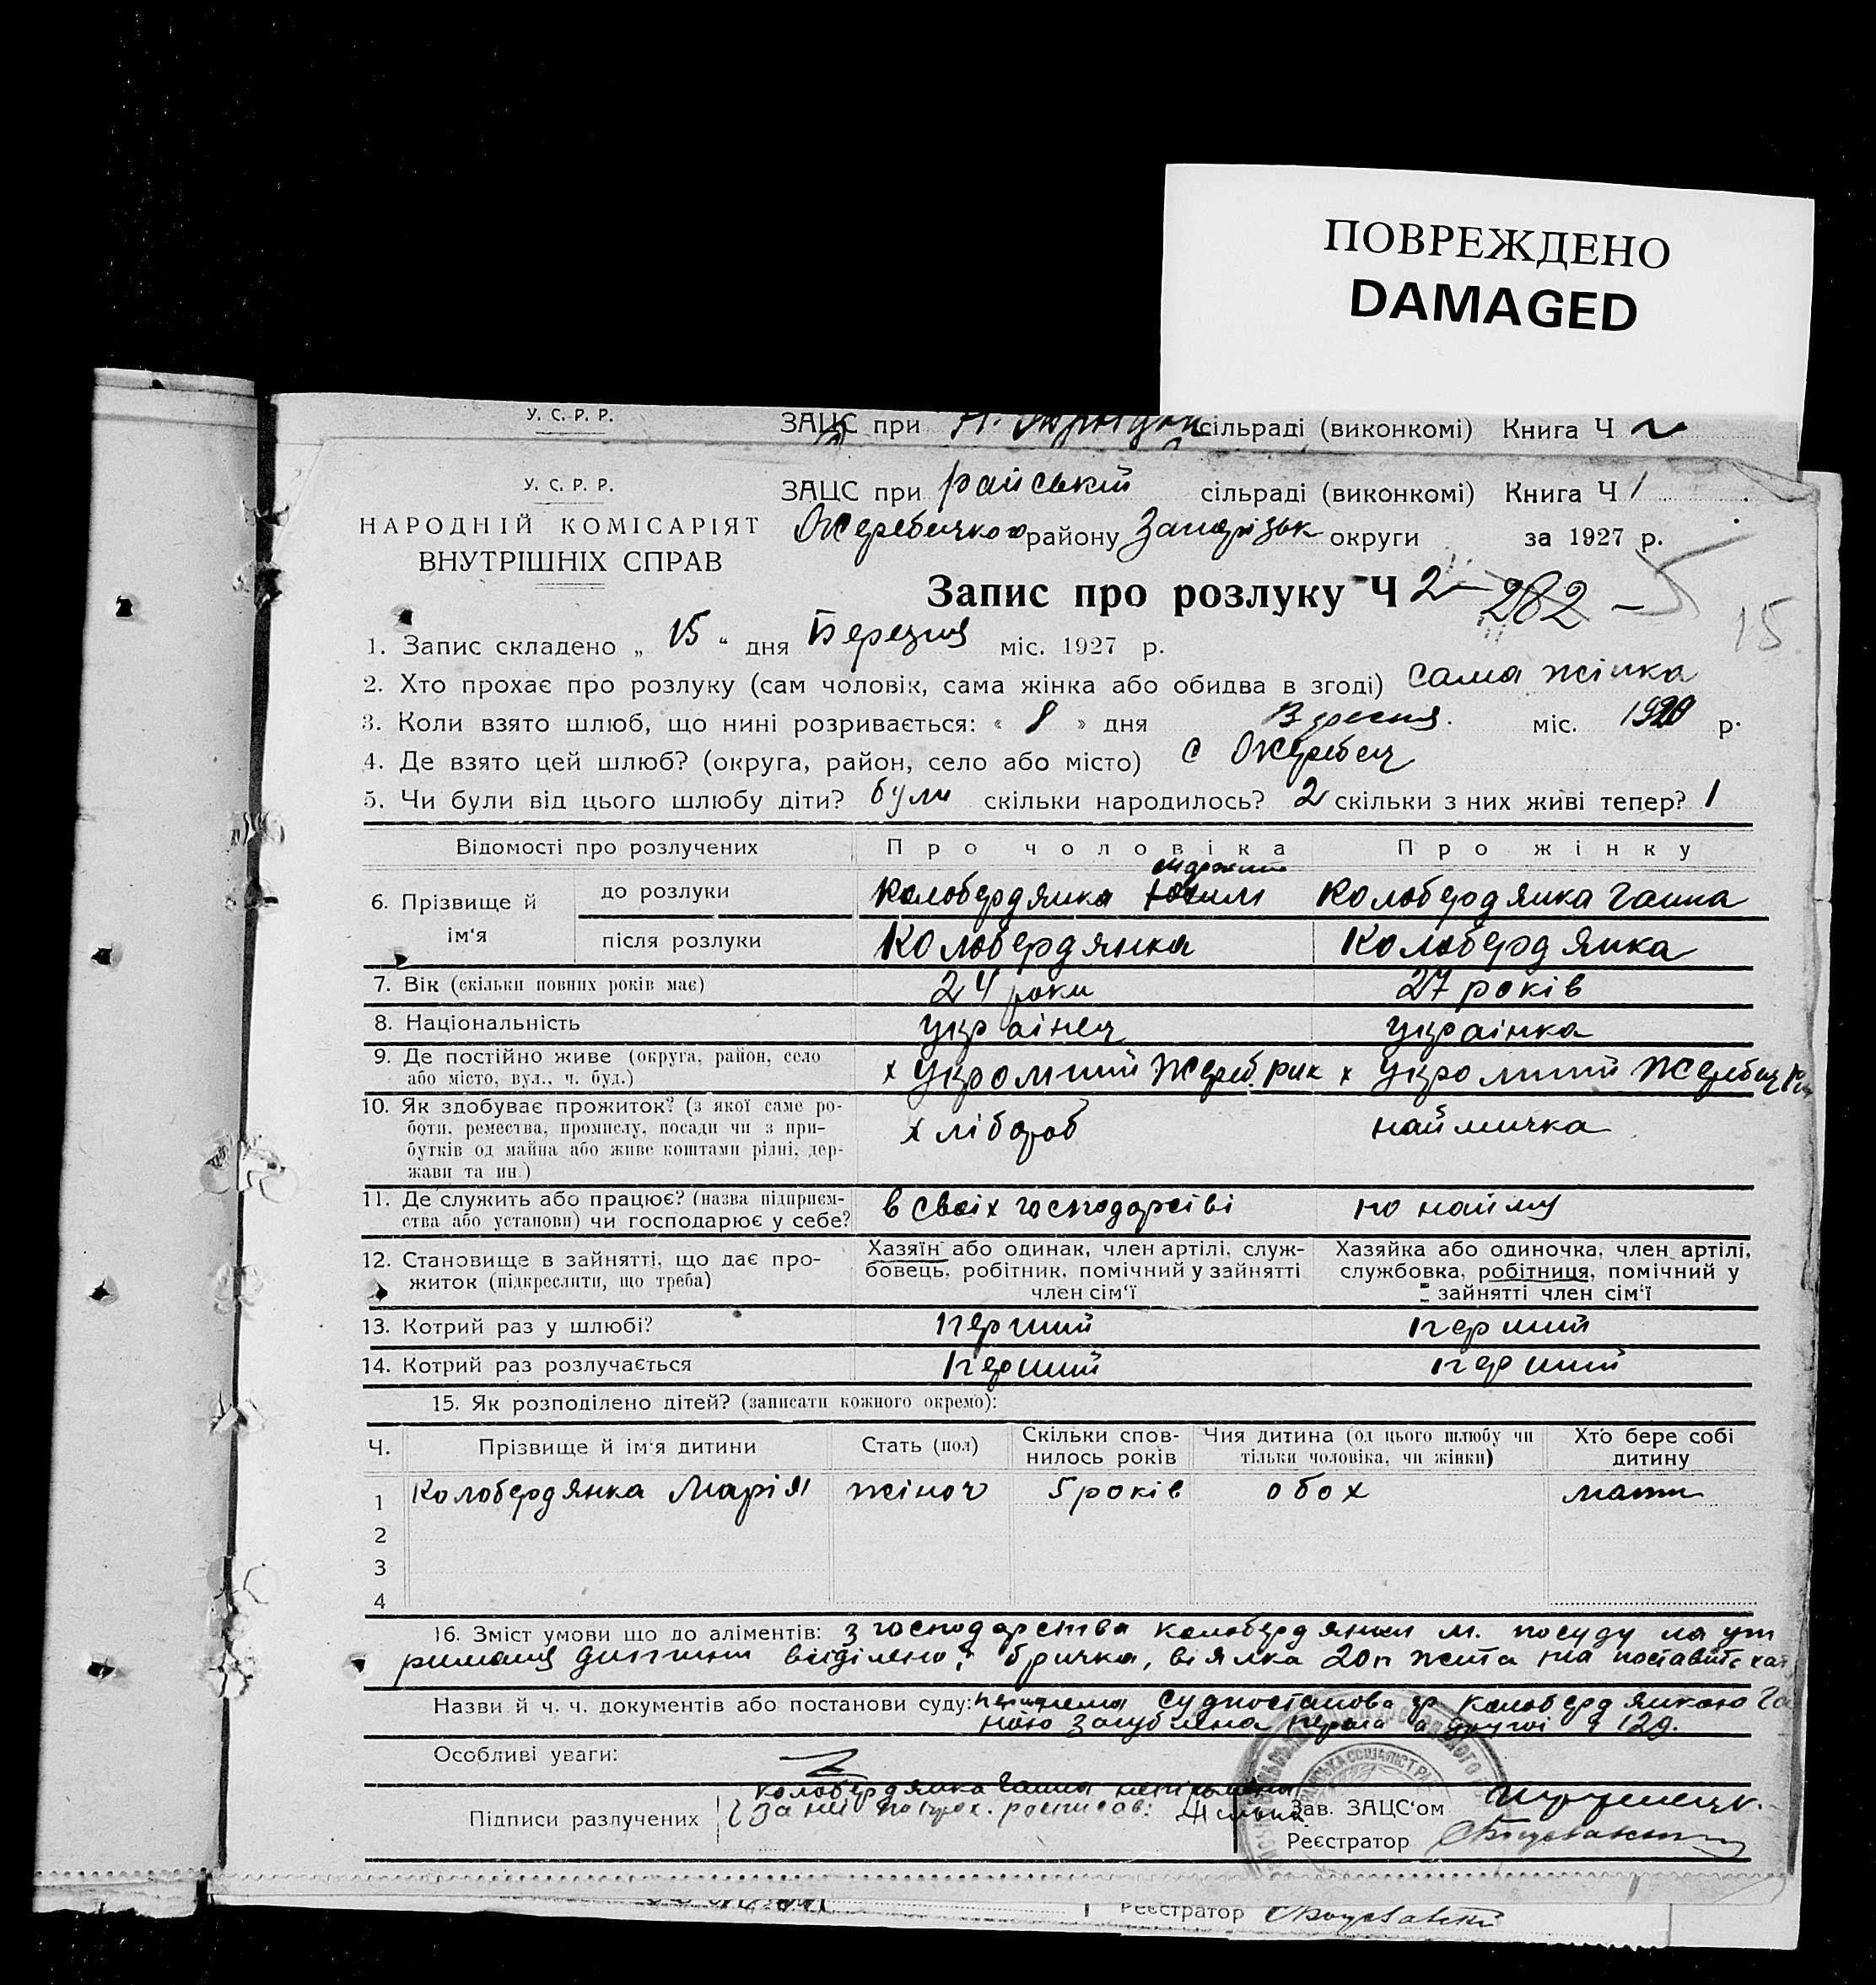 ПОВРЕЖДЕНО
DAMAGED
У. С. Р. Р.
ЗАЦС при сільраді (виконкомі) Книга Ч 2
У. С. Р. Р.
ЗАЦС при райській сільраді (виконкомі) Книга Ч 1
НАРОДНІЙ КОМІСАРІЯТ
Жеребецького району Запорізьк округи за 1927 р.
ВНУТРІШНІХ СПРАВ
Запис про розлуку Ч 2 282 – 5
15
1. Запис складено „ 15 “ дня Березня міс. 1927 р.
2. Хто прохає про розлуку (сам чоловік, сама жінка або обидва в згоді) сама жінка
3. Коли взято шлюб, що нині розривається: « 8 » дня Вересня міс. 1920 р.
4. Де взято цей шлюб? (округа, район, село або місто) с Жеребец
5. Чи були від цього шлюбу діти? були скільки народилось? 2 скільки з них живі тепер? 1
Відомості про розлучених
Про чоловіка
Про жінку
6. Прізвище й ім'я
до розлуки
Колобердянка
Колобердянка Ганна
після розлуки
Колобердянка
Колобердянка
7. Вік (скільки повних років має)
24 роки
27 років
8. Національність
українец
українка
9. Де постійно живе (округа, район, село
або місто, вул., ч. буд.)
х Укромний Жереб. рик
х Укромний Жеребец
10. Як здобуває прожиток? (з якої саме ро-
боти, ремества, промислу, посади чи з при-
бутків од майна або живе коштами рідні, дер-
жави та ин.)
хлібороб
наймичка
11. Де служить або працює? (назва підприєм-
ства або установи) чи господарює у себе?
в своїх господарстві
по найму
12. Становище в зайнятті, що дає про-
житок (підкреслити, що треба)
Хазяїн або одинак, член артілі, служ-
бовець, робітник, помічний у зайнятті
член сім'ї
Хазяйка або одиночка, член артілі,
службовка, робітниця, помічний у
зайнятті член сім'ї
13. Котрий раз у шлюбі?
перший
перший
14. Котрий раз розлучається
перший
перший
15. Як розподілено дітей? (записати кожного окремо):
Ч.
Прізвище й ім'я дитини
Стать (пол)
Скільки спов-
нилось років
Чия дитина (од цього шлюбу чи
тільки чоловіка, чи жінки)
Хто бере собі
дитину
1 Колобердянка Марія жіноч 5 років обох мати
2
3
4
16. Зміст умови що до аліментів: з господарства колобердянки м. посуду на ут
римання дитини виділено: бричка, віялка 20п жита та поставить хат
Назви й ч. ч. документів або постанови суду: судпостанова колобердянкою Га
ною загублена
Особливі уваги: Z
Колобердянка Ганна неписьмена
Підписи разлучених за неї росписав:
Зав. ЗАЦС'ом
Реєстратор
Реєстратор